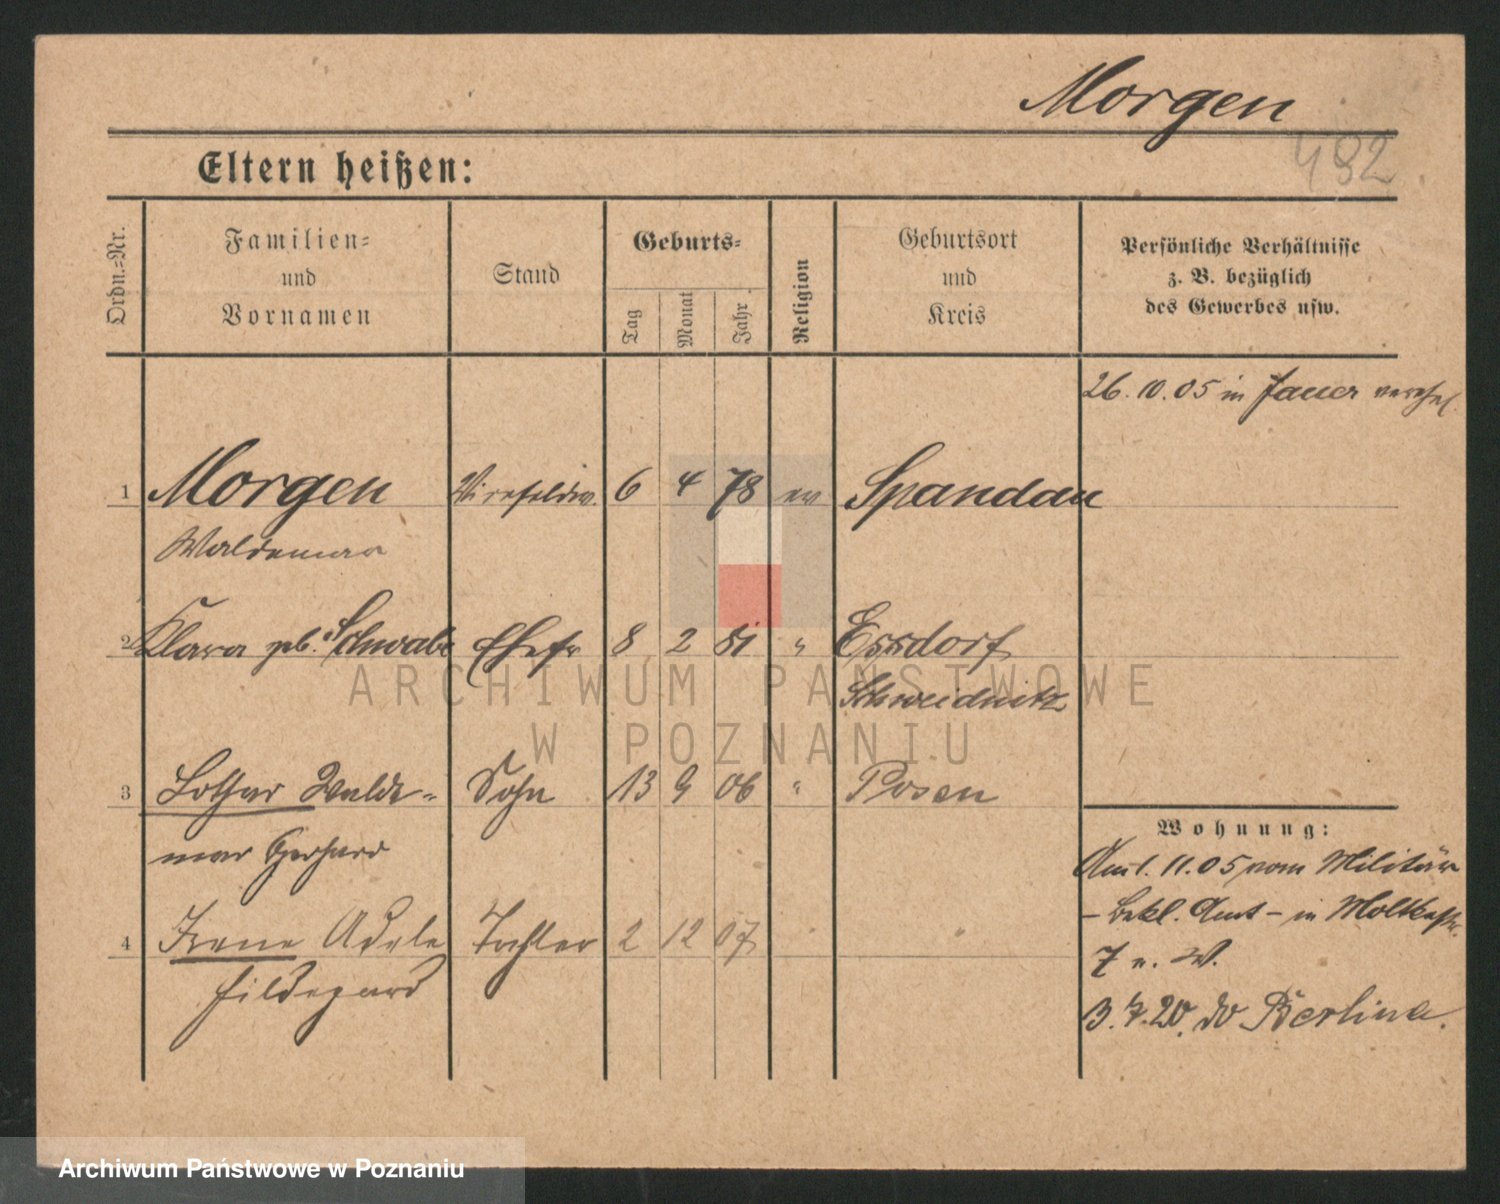 Morgen
482
Eltern heißen:
Ordn.-Nr.
Familien-
und
Vornamen
Stand
Geburts-
Tag
Monat
Jahr
Religion
Geburtsort
und
Kreis
Persönliche Verhältnisse
z. B. bezüglich
des Gewerbes usw.
26.10.05 in Jauer verehel.
1 Morgen 6 4 78 ev Spandau
Waldemar
2 Klara geb. Schwabe Ehefr 8 2 81 " Essdorf
Schweidnitz
3 Lothar Walde- Sohn 13 9 06 " Posen
mar Gerhard
4 Irene Adele Tochter 2 12 07
Hildegard
Wohnung:
11.05 vom Militär
- Bekl. Amt - in Moltkestr.
7 n. W.
3.7.20. do Berlina.
ARCHIWUM PAŃSTWOWE
W POZNANIU
Archiwum Państwowe w Poznaniu